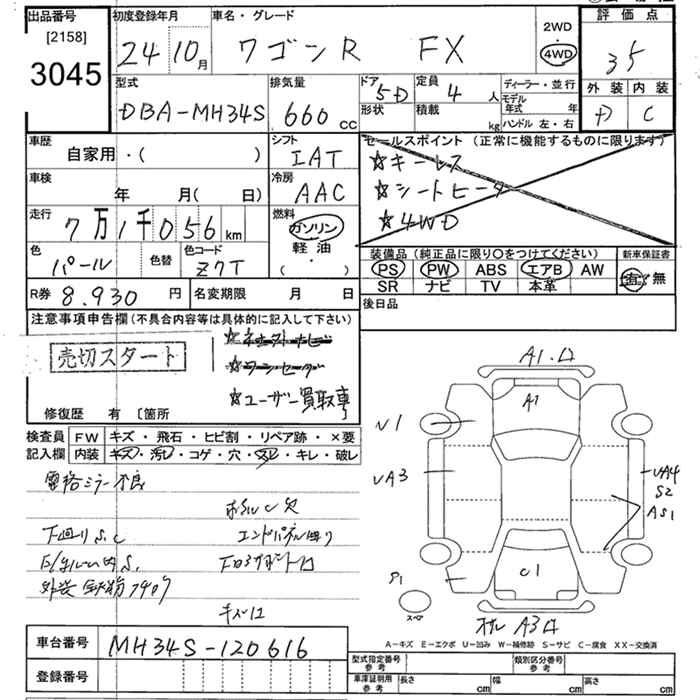 出品番号
[2158]
3045
初度登録年月
24 10月
車名・グレード
ワゴンR FX
2WD
4WD
評価点
35
外装 内装
D C
型式
DBA-MH34S
排気量
660 cc
ドア
5D
形状
定員
4 人
積載
kg
ディーラー・並行
モデル年式 年
ハンドル 左・右
車歴
自家用・( )
シフト
IAT
セールスポイント (正常に機能するものに限ります)
☆キーレス
☆シートヒーター
☆4WD
車検
年 月( 日)
冷房
AAC
走行
7万1千056km
燃料
ガソリン
軽油
( ・ )
色
パール
色替
色コード
Z7T
装備品 (純正品に限り○をつけてください)
PS PW ABS エアB AW
SR ナビ TV 本革
新車保証書
有・無
R券 8.930円
名変期限 月 日
後日品
注意事項申告欄(不具合内容等は具体的に記入して下さい)
売切スタート
☆ワンセグ
☆ユーザー買取車
修復歴 有 〔箇所
検査員記入欄
FW キズ・飛石・ヒビ割・リペア跡・×要
内装 キズ・汚レ・コゲ・穴・スレ・キレ・破レ
電格ミラー不良
下回りS.C
キズ凹
A1.凹
A1
U1
UA3
UA4
S2
AS1
P1
スペア
U1
A3凹
A-キズ E-エクボ U-凹み W-補修跡 S-サビ C-腐食 XX-交換済
車台番号
MH34S-120616
登録番号
型式指定番号
参考
類別区分番号
参考
車庫証明用
参考
長さ cm 幅 cm 高さ cm